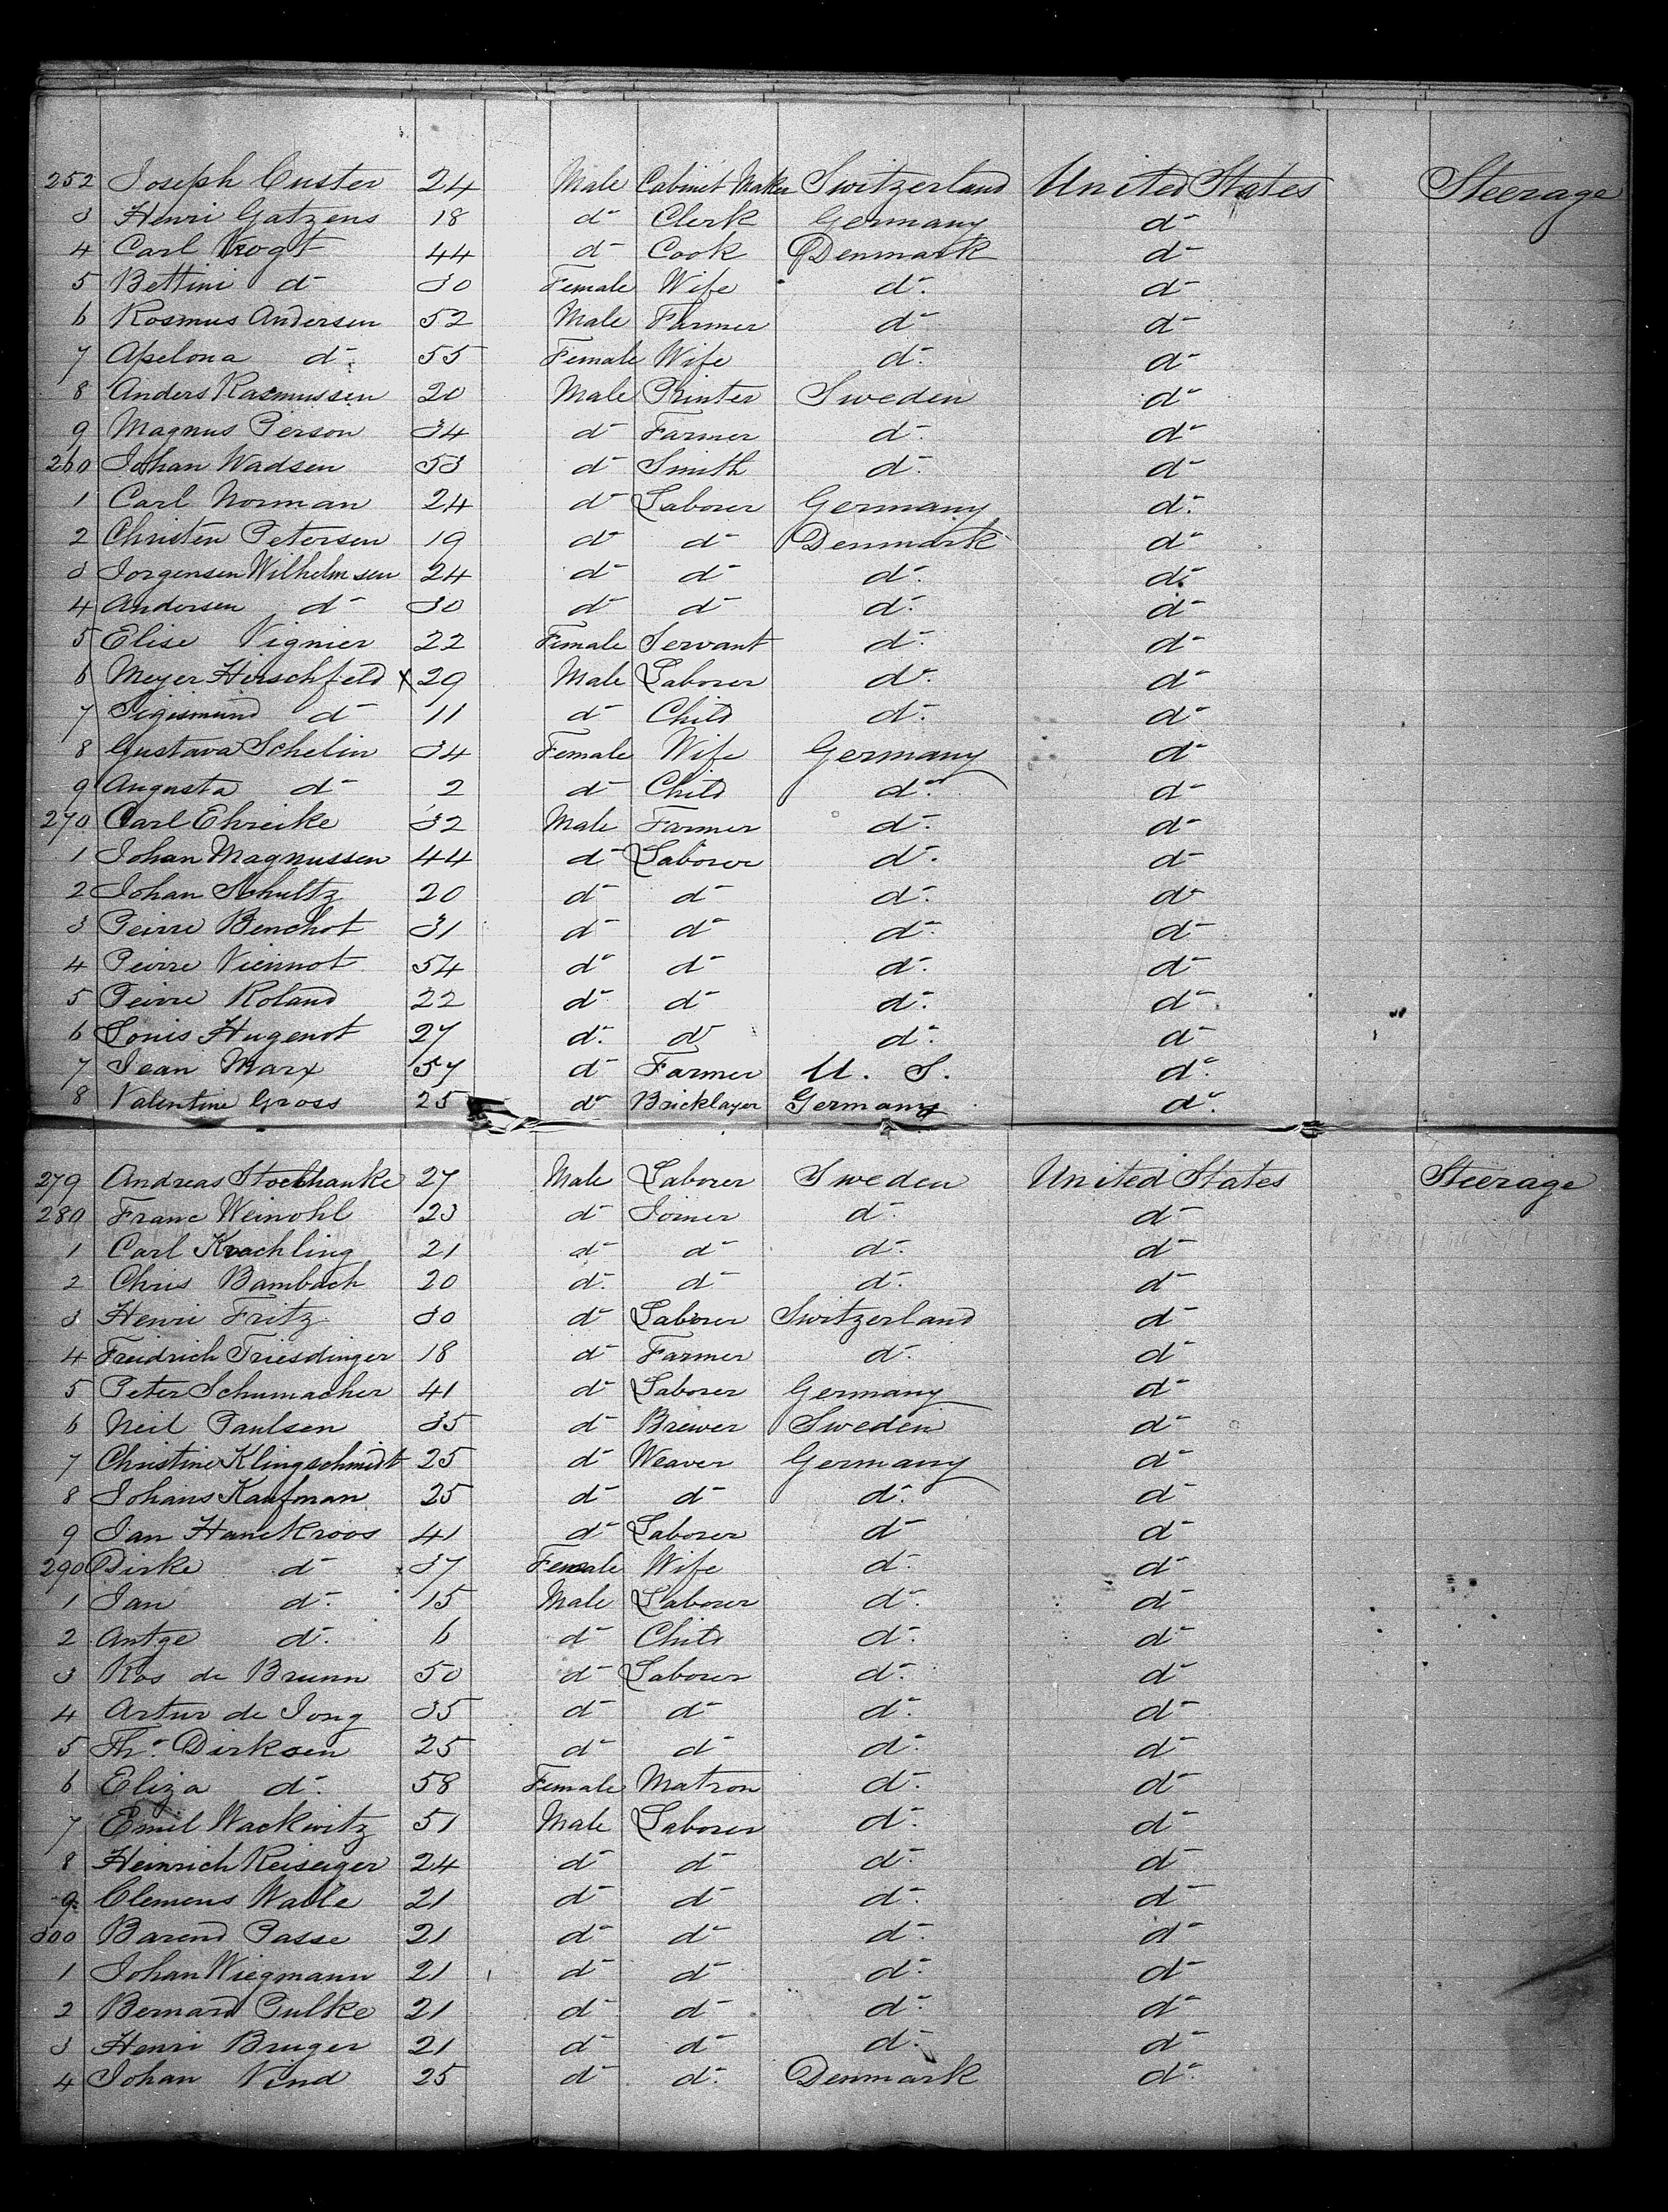 252 Joseph Custer 24 Male Cabinet Maker Switzerland United States Steerage
3 Henri Gatzens 18 d- Clerk Germany d-
4 Carl Vrogt 44 d- Cook Denmark d-
5 Bettini d- 30 Female Wife d- d-
6 Rosmus Andersen 52 Male Farmer d- d-
7 Apelona d- 55 Female Wife d- d-
8 Anders Rasmussen 20 Male Printer Sweden d-
9 Magnus Person 34 d- Farmer d- d-
260 Johan Wadsen 53 d- Smith d- d-
1 Carl Norman 24 d- Laborer Germany d-
2 Christen Petersen 19 d- d- Denmark d-
3 Jorgensen Wilhelmsen 24 d- d- d- d-
4 Andersen d- 30 d- d- d- d-
5 Elise Vignier 22 Female Servant d- d-
6 Meyer Herschfeld x 29 Male Laborer d- d-
7 Sigismund d- 11 d- Child d- d-
8 Gustava Schelin 34 Female Wife Germany d-
9 Augusta d- 2 d- Child d- d-
270 Carl Ehreike 32 Male Farmer d- d-
1 Johan Magnussen 44 d- Laborer d- d-
2 Johan Schultz 20 d- d- d- d-
3 Peirre Benchot 31 d- d- d- d-
4 Peirre Viennot 54 d- d- d- d-
5 Peirre Roland 22 d- d- d- d-
6 Louis Hugenot 27 d- d- d- d-
7 Jean Marx 57 d- Farmer U. S. d-
8 Valentine Gross 25 d- Bricklayer Germany d-
279 Andreas 27 Male Laborer Sweden United States Steerage
280 Franc Weinohl 23 d- Joiner d- d-
1 Carl Krachling 21 d- d- d- d-
2 Chris Bambach 20 d- d- d- d-
3 Henri Fritz 30 d- Laborer Switzerland d-
4 Freidrich Triesdinger 18 d- Farmer d- d-
5 Peter Schumacher 41 d- Laborer Germany d-
6 Neil Paulsen 35 d- Brewer Sweden d-
7 Christine Klingschmidt 25 d- Weaver Germany d-
8 Johans Kaufman 25 d- d- d- d-
9 Jan Hanckroos 41 d- Laborer d- d-
290 Dirke d- 37 Female Wife d- d-
1 Jan d- 15 Male Laborer d- d-
2 Antge d- 6 d- Child d- d-
3 Kos de Brunn 50 d- Laborer d- d-
4 Artur de Jong 35 d- d- d- d-
5 Th- Dirksen 25 d- d- d- d-
6 Eliza d- 58 Female Matron d- d-
7 Emil Wackwitz 51 Male Laborer d- d-
8 Heinrich Reiseiger 24 d- d- d- d-
9 Clemens Walle 21 d- d- d- d-
300 Barend Passe 21 d- d- d- d-
1 Johan Wiegmann 21 d- d- d- d-
2 Bernard Pulke 21 d- d- d- d-
3 Henri Bruger 21 d- d- d- d-
4 Johan Vind 25 d- d- Denmark d-